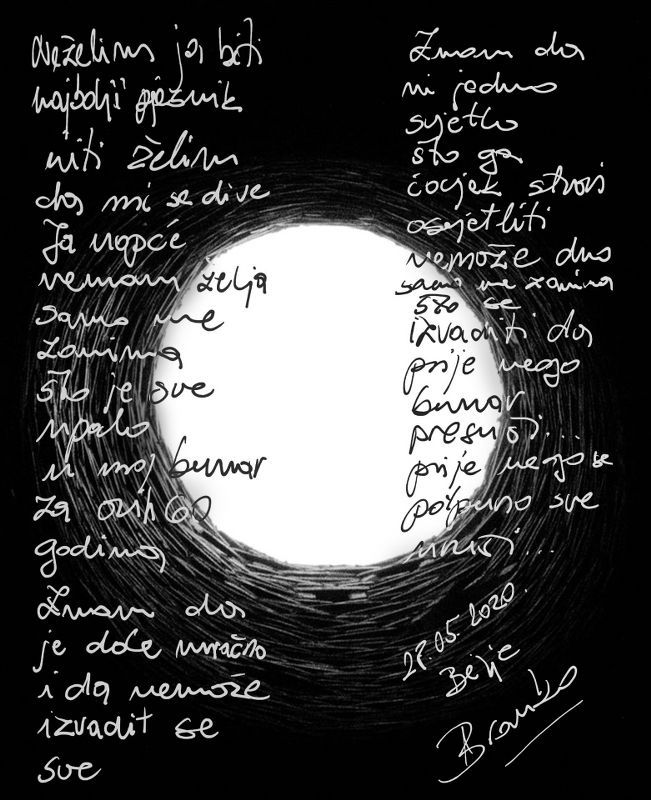 Neželim ja biti
najbolji pjesnik
niti želim
da mi se dive
Ja uopće
nemam želja
samo me
zanima
što je sve
upalo
u moj bunar
za ovih 60
godina
Znam da
je dole mračno
i da nemože
izvadit se
sve
Znam da
ni jedno
svjetlo
što ga
čovjek stvori
osvjetliti
nemože dno
samo me zanima
što se
izvaditi da
prije nego
bunar
presuši...
prije nego se
potpuno sve
uruši...
28.05.2020.
Belje
Branko